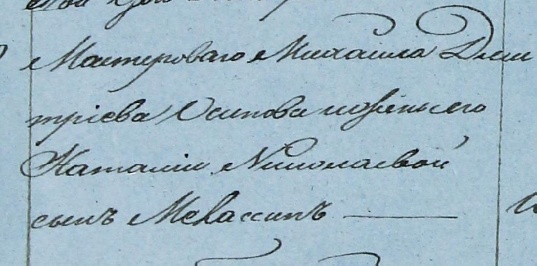 Мастероваго Михаила Дми
тріева Осипова и жены его
Наталіи Николаевой
сынъ Меласиппъ